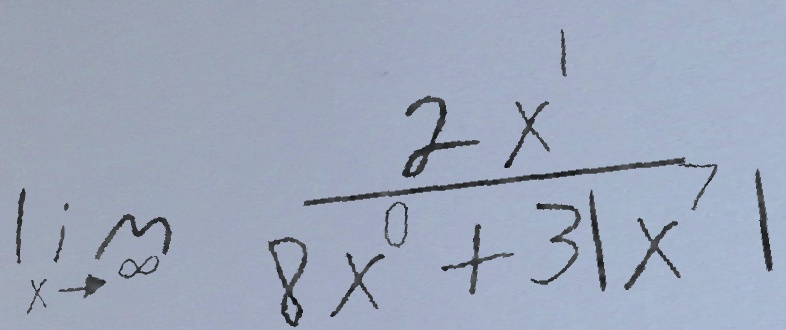 \lim_{x \to \infty} \frac{2x^1}{8x^0 + 3|x^7|}